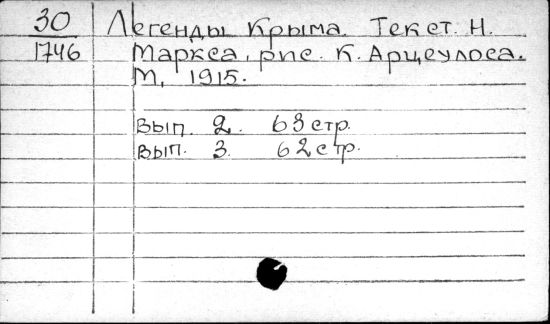 30 Легенды Крыма. Текст. Н.
1746 Маркса, рис. К. Арцеулоса.
М, 1915.
Вып. 2. 63 стр.
Вып. 3. 62 стр.